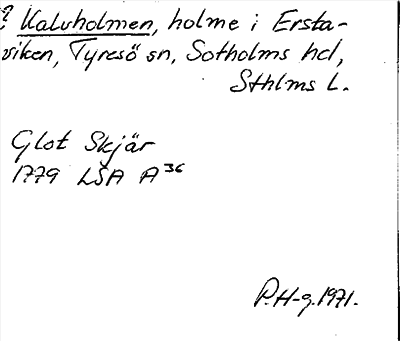 ? Kalvholmen, holme i Ersta-
viken, Tyresö sn, Sotholms hd,
Sthlms L.
Glot Skjär
1779 LSA A36
P.H-g. 1971.